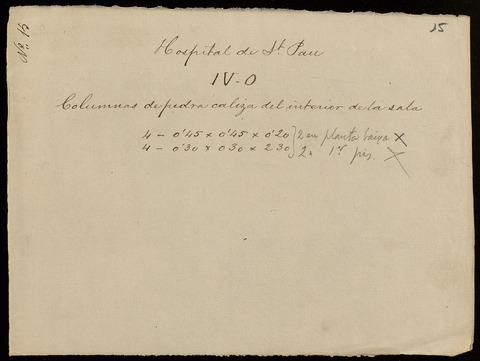 Nº 15
15
Hospital de St. Pau
IV-O
Columnas de piedra caliza del interior de la sala
4 - 0'45 x 0'45 x 0'20 } 2 en planta baixa X
4 - 0'30 x 0 30 x 2 30 } 2 " 1er pis. X